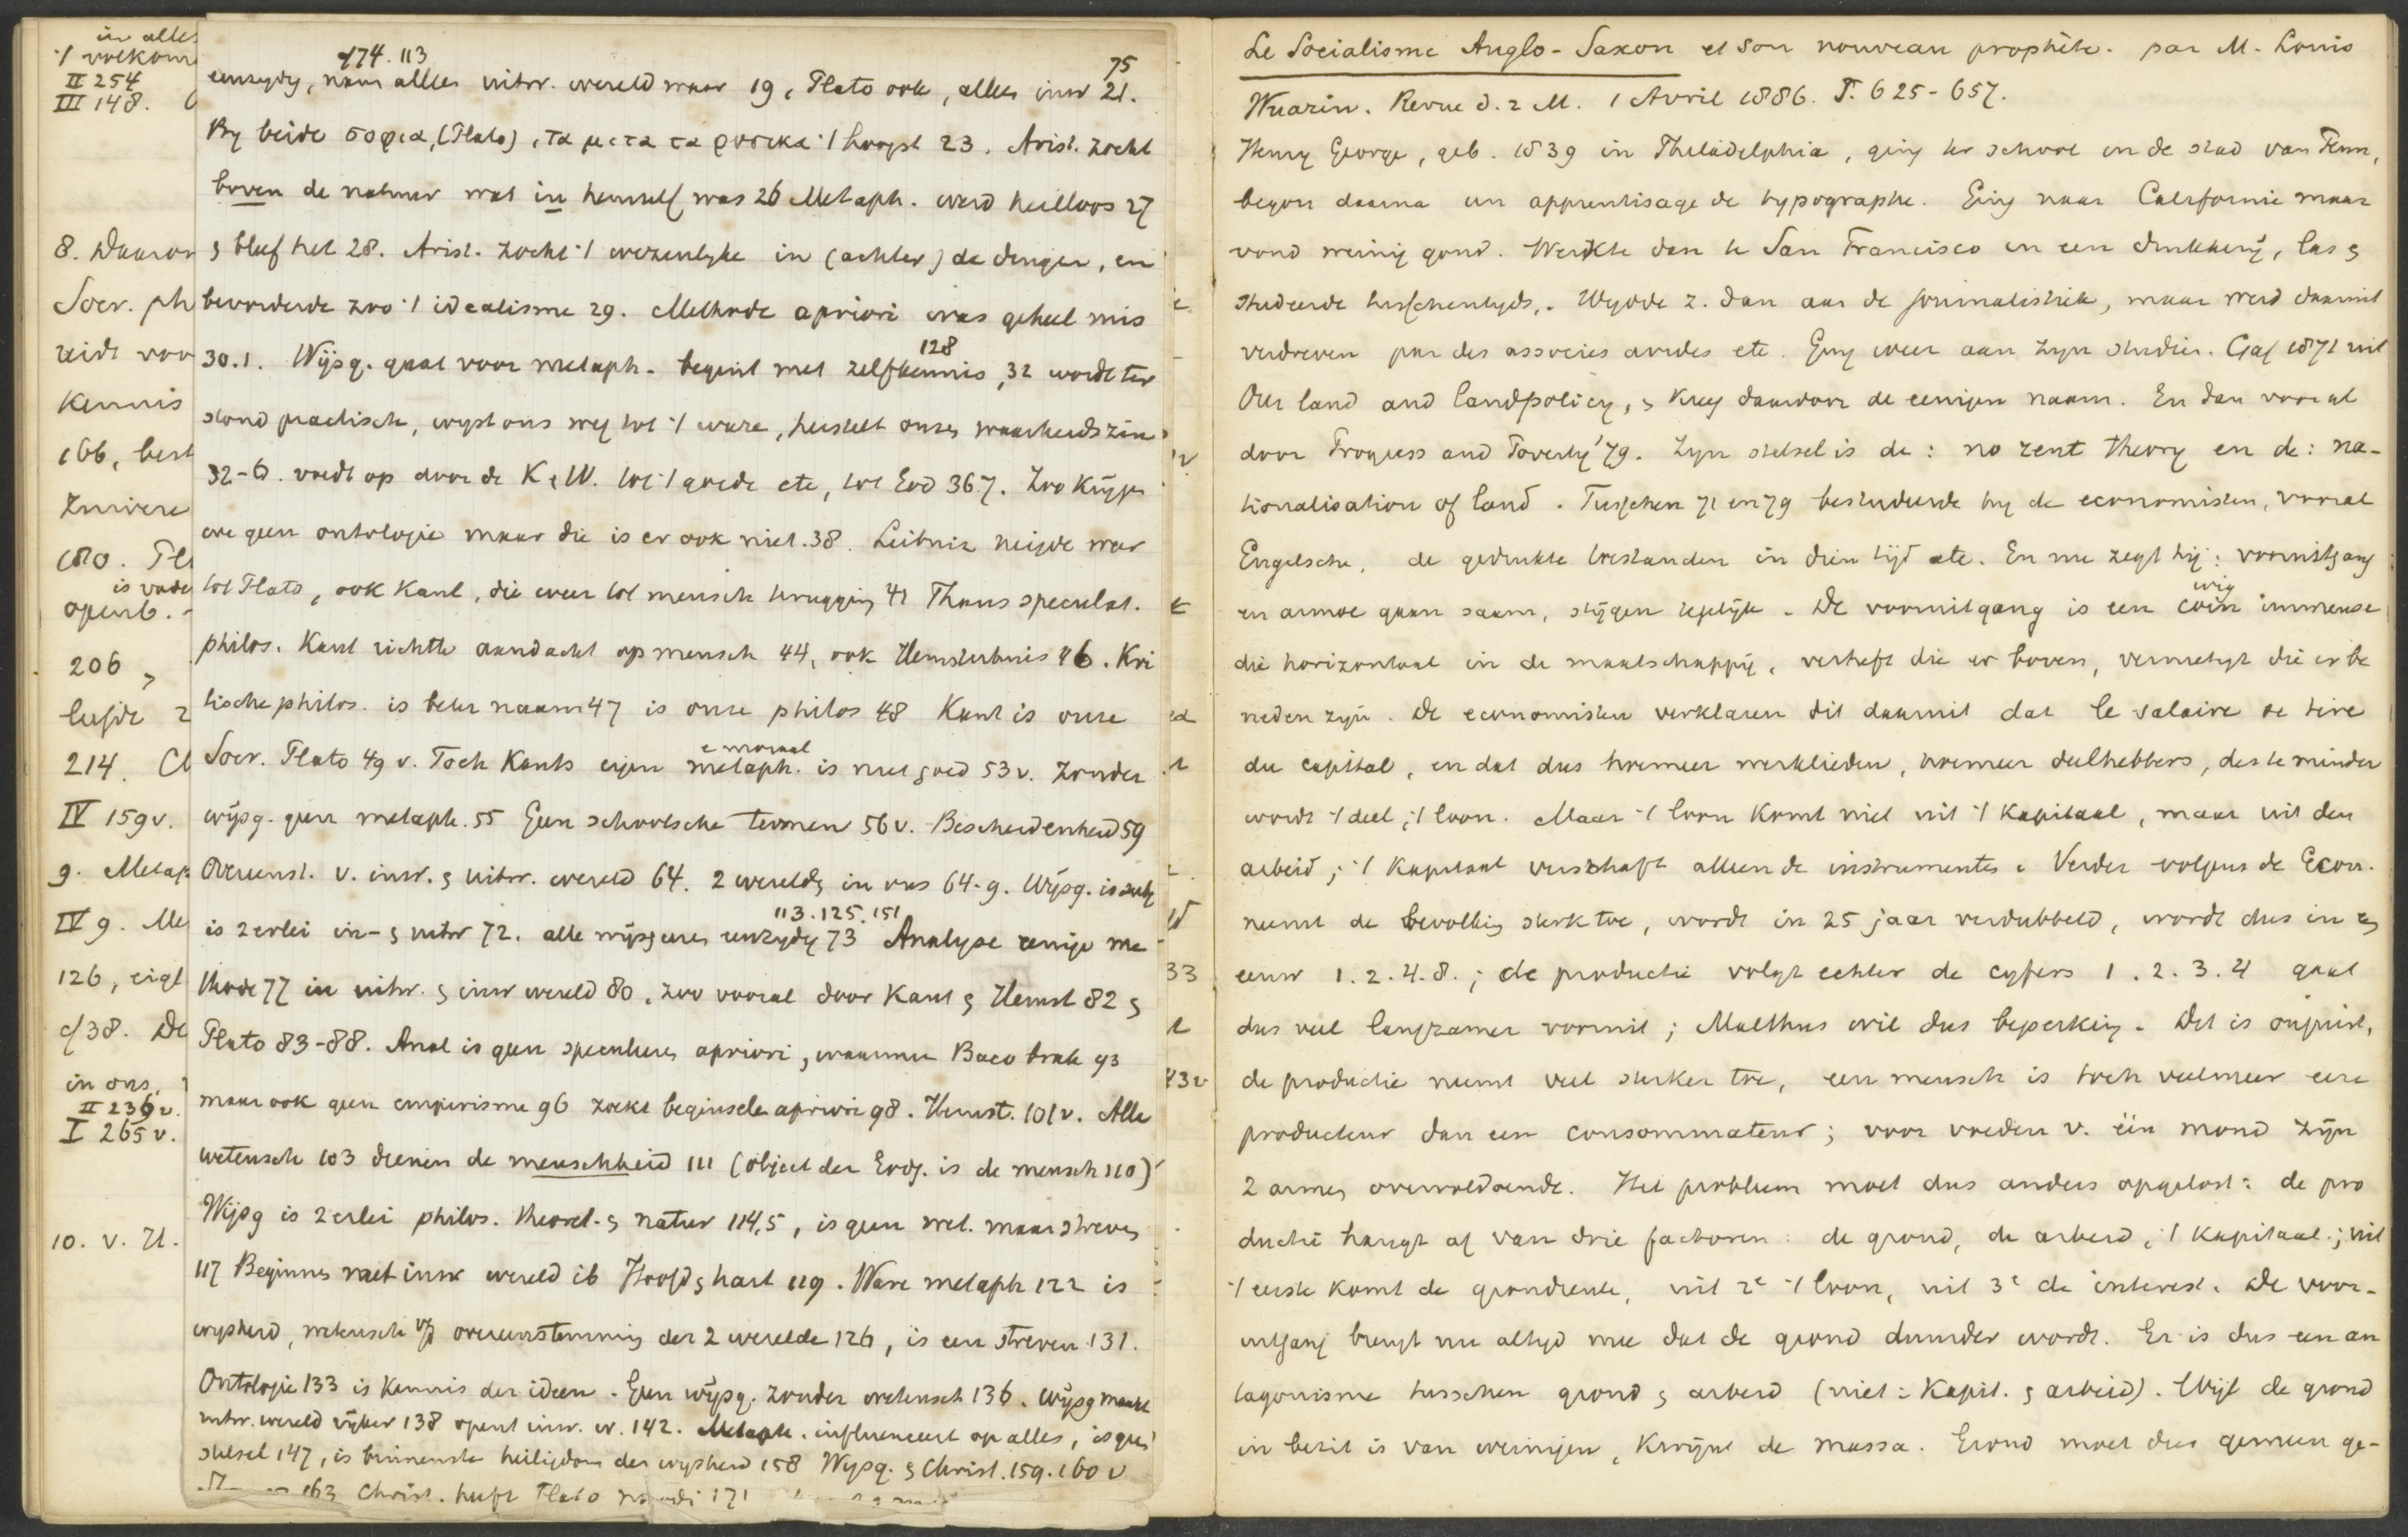 in alles
't volkom
II 254
III 148.
8. Daarom
Socr. ph
reidt voor
Kennis
166, best
zuivere
180. Pl
is vader
openb. -
206,
liefde 2
214. Cl
IV 159v.
9. Metap
IV 9. Me
126, eigl
138. De
in ons,
II 236v.
I 265v.
10. v. H.
174. 113 75
eenzydig, nam alles uitw. wereld waar 19, Plato ook, alles inw 21.
By beide σοφια, (Plato), τα μετα τα φυσικα 't hoogst 23. Arist. zocht
boven de natuur wat in hemzelf was 26 Metaph. werd heilloos 27
& bleef het 28. Arist. zocht 't wezenlyke in (achter) de dingen, en
bevorderde zoo 't idealisme 29. Methode apriori was geheel mis
30.1. Wijsg. gaat voor metaph. begint met zelfkennis, 128 32 wordt ter
stond practisch, wyst ons weg tot 't ware, herstelt onzen waarheidszin
32-6. voedt op door de K & W. tot 't goede etc, tot God 36.7. Zoo krijgen
we geen ontologie maar die is er ook niet. 38. Leibniz neigde weer
tot Plato, ook Kant, die weer tot mensch terugging 41 Thans speculat.
philos. Kant richtte aandacht op mensch 44, ook Hemsterhuis 46. Kri
tische philos. is beter naam 47 is onze philos 48 Kant is onze
Socr. Plato 49 v. Toch Kants eigen metaph. e moraal is niet goed 53v. Zonder
wijsg. geen metaph. 55 Geen schoolsche termen 56v. Bescheidenheid 59
Overeenst. v. inw. & uitw. wereld 64. 2 werelden in ons 64-9. Wijsg. is
is 2erlei in- & uitw 72. alle wijsgeeren eenzydig 73 113.125.151 Analyse eenige me
thode 77 in uitw. & inw wereld 80, zoo vooral door Kant & Hemst 82 &
Plato 83-88. Anal is geen speculeren apriori, waarmee Baco brak 93
maar ook geen empirisme 96 zoekt beginselen apriori 98. Hemst. 101v. Alle
wetensch 103 dienen de menschheid 111 (object der Godg. is de mensch 110)
Wijsg is 2erlei philos. theoret. & natuur 114,5, is geen wet. maar streven
117 Beginnen met inw wereld ib Hoofd & hart 119. Ware metaph 122 is
wysheid, wetensch v/d overeenstemming der 2 werelden 126, is een streven 131.
Ontologie 133 is Kennis der ideen. Geen wijsg. zonder wetensch 136. wijsg maakt
uitw. wereld rijker 138 opent inw. w. 142. Metaph. influenceert op alles, is geen
stelsel 147, is binnenste heiligdom der wysheid 158 Wysg. & Christ. 159. 160 v
163 Christ. heeft Plato noodi 171
Le Socialisme Anglo-Saxon et son nouveau prophète. par M. Louis
Wuarin. Revue d. 2 M. 1 Avril 1886. P. 625-657.
Henry George, geb. 1839 in Philadelphia, ging ter school in de stad van Penn,
begon daarna un apprentisage de typographe. Ging naar Californie maar
vond weinig goud. Werkte dan te San Francisco in een drukkerij, las &
studeerde tusschentyds. Wydde z. dan aan de journalistiek, maar werd daaruit
verdreven par des associes avides etc. Ging weer aan zyn studien. Gaf 1871 uit
Our land and landpolicy, & kreeg daardoor de eenigen naam. En dan vooral
door Progress and Poverty '79. Zyn stelsel is de: no rent theory en de: na-
tionalisation of land. Tusschen 71 en 79 bestudeerde hy de economisten, vooral
Engelsche, de gedrukte toestanden in dien tijd etc. En nu zegt hij: vooruitgang
en armoe gaan saam, stijgen tegelijk. De vooruitgang is een coin wig immense
die horizontaal in de maatschappij, verheft die er boven, vernietigt die er be
neden zyn. De economisten verklaren dit daaruit dat le salaire se tire
du capital, en dat dus hoemeer werklieden, hoemeer deelhebbers, des te minder
wordt 't deel, 't loon. Maar 't loon komt niet uit 't kapitaal, maar uit den
arbeid; 't Kapitaal verschaft alleen de instrumenten. Verder volgens de Econ.
neemt de bevolking sterk toe, wordt in 25 jaar verdubbeld, wordt dus in een
eeuw 1.2.4.8.; de productie volgt echter de cyfers 1.2.3.4 gaat
dus veel langzamer vooruit; Malthus wil dus beperking. Dit is onjuist,
de productie neemt veel sterker toe, een mensch is toch veelmeer een
producteur dan een consommateur; voor voeden v. één mond zijn
2 armen overvoldoende. Het probleem moet dus anders opgelost: de pro
ductie hangt af van drie factoren: de grond, de arbeid, 't kapitaal; uit
't eerste komt de grondrente, uit 2e 't loon, uit 3e de interest. De voor-
uitgang brengt nu altyd mee dat de grond duurder wordt. Er is dus een an
tagonisme tusschen grond & arbeid (niet: Kapit. & arbeid). Wijl de grond
in bezit is van weinigen, kwijnt de massa. Grond moet dus gemeen ge-